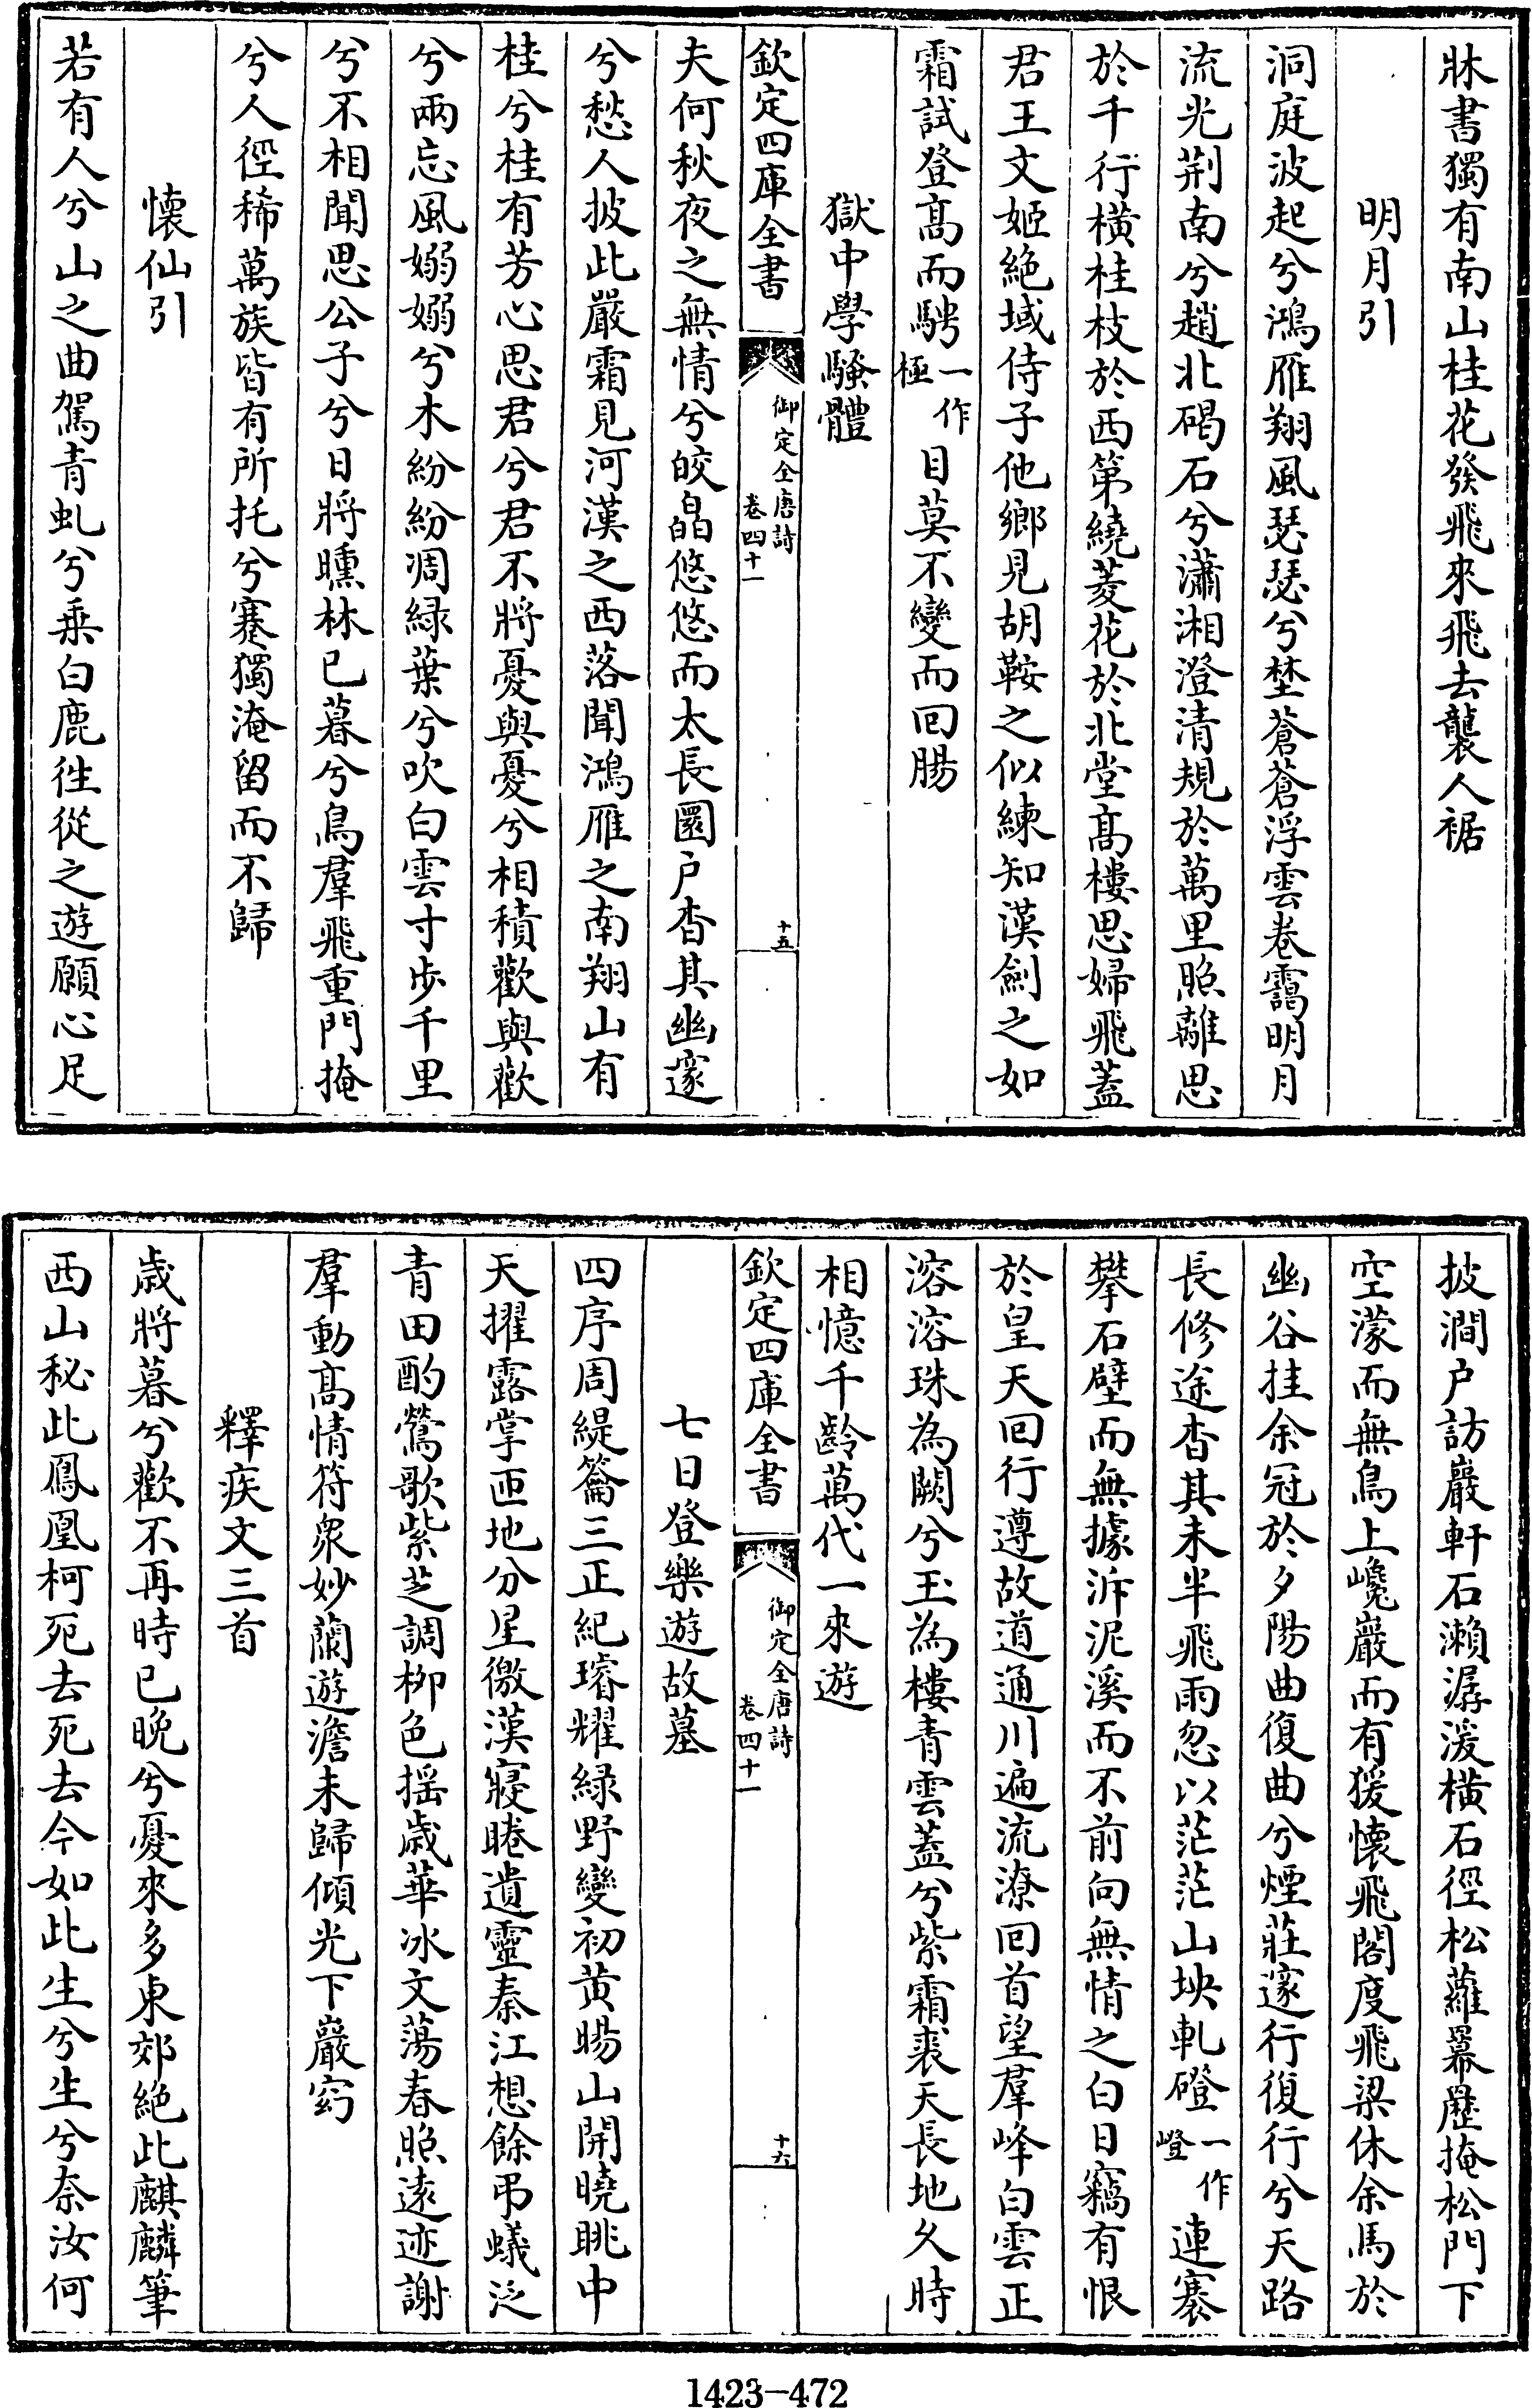 牀書獨有南山桂花發飛來飛去襲人裾
明月引
洞庭波起兮鴻雁翔風瑟瑟兮埜蒼蒼浮雲卷靄明月
流光荆南兮趙北碣石兮瀟湘澄清規於萬里照離思
於千行橫桂枝於西第繞菱花於北堂髙樓思婦飛蓋
君王文姬絶域侍子他鄉見胡鞍之似練知漢劍之如
霜試登髙而騁一作極目莫不變而回腸
獄中學騷體
欽定四庫全書
御定全唐詩
卷四十一
十五
夫何秋夜之無情兮皎皛悠悠而太長圜户杳其幽邃
兮愁人披此嚴霜見河漢之西落聞鴻雁之南翔山有
桂兮桂有芳心思君兮君不將憂與憂兮相積歡與歡
兮兩忘風嫋嫋兮木紛紛凋緑葉兮吹白雲寸步千里
兮不相聞思公子兮日將曛林已暮兮鳥羣飛重門掩
兮人徑稀萬族皆有所托兮蹇獨淹留而不歸
懷仙引
若有人兮山之曲駕青虬兮乗白鹿往從之遊願心足
披澗户訪巖軒石瀨潺湲橫石徑松蘿羃䍥掩松門下
空濛而無鳥上巉巖而有猨懷飛閣度飛梁休余馬於
幽谷挂余冠於夕陽曲復曲兮煙莊邃行復行兮天路
長修途杳其未半飛雨忽以茫茫山坱軋磴一作嶝連褰
攀石壁而無據泝泥溪而不前向無情之白日竊有恨
於皇天回行遵故道通川遍流潦回首望羣峰白雲正
溶溶珠為闕兮玉為樓青雲蓋兮紫霜裘天長地久時
相憶千齡萬代一來遊
欽定四庫全書
御定全唐詩
卷四十一
十六
七日登樂遊故墓
四序周緹籥三正紀璿耀緑野變初黄暘山開曉眺中
天擢露掌匝地分星徼漢寢睠遺靈秦江想餘弔蟻泛
青田酌鶯歌紫芝調柳色摇歲華冰文蕩春照遠迹謝
羣動髙情符衆妙蘭遊澹未歸傾光下巖窈
釋疾文三首
歲將暮兮歡不再時已晚兮憂來多東郊絶此麒麟筆
西山秘此鳳凰柯死去死去今如此生兮生兮奈汝何
1423-472